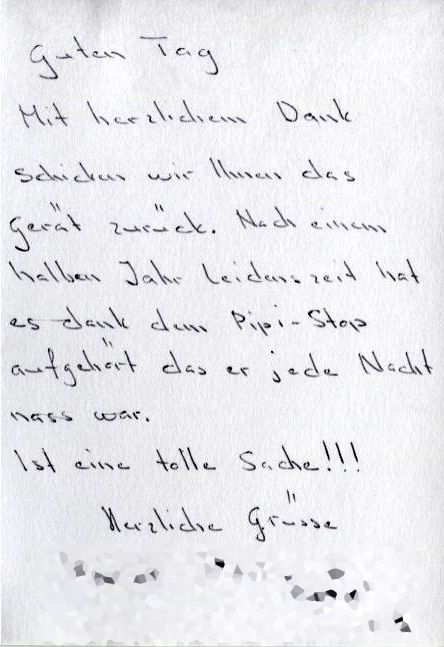 Guten Tag
Mit herzlichem Dank
schicken wir Ihnen das
Gerät zurück. Nach einem
halben Jahr Leidenszeit hat
es dank dem Pipi-Stop
aufgehört das er jede Nacht
nass war.
Ist eine tolle Sache!!!
Herzliche Grüsse